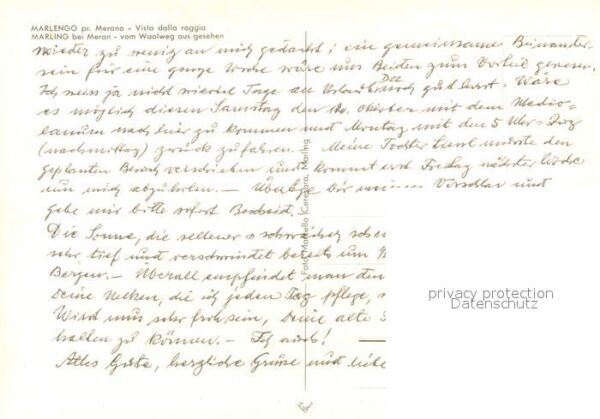 MARLENGO pr. Merano - Vista dalla roggia
MARLING bei Meran - vom Waalweg aus gesehen
wieder zu wenig an mich gedacht; ein gemeinsames Beinander-
sein für eine ganze Woche wäre uns Beiden zum Vorteil gewesen.
Ich weiss ja nicht wieviel Tage an Urlaub Du noch gut hast. Wäre
es möglich diesen Samstag den 10. Oktober mit dem Medio-
lanum nach hier zu kommen und Montag mit dem 5 Uhr-Zug
(nachmittag) zurück zu fahren. Meine Tochter musste den
geplanten Besuch verschieben und kommt erst Freitag nächster Woche
um mich abzuholen. — Überlege bitte meinen Vorschlag und
gebe mir bitte sofort Bescheid.
Die Sonne, die seltener
sehr tief und verschwindet bereits um
Bergen. — Überall empfindet man den
Deine Nelken, die ich jeden Tag pflege,
Wird uns sehr froh sein, Deine alte
halten zu können. — Ich auch!
Alles Gute, herzliche Grüsse und liebe
Foto Marcello Cerrano, Marling
privacy protection
Datenschutz